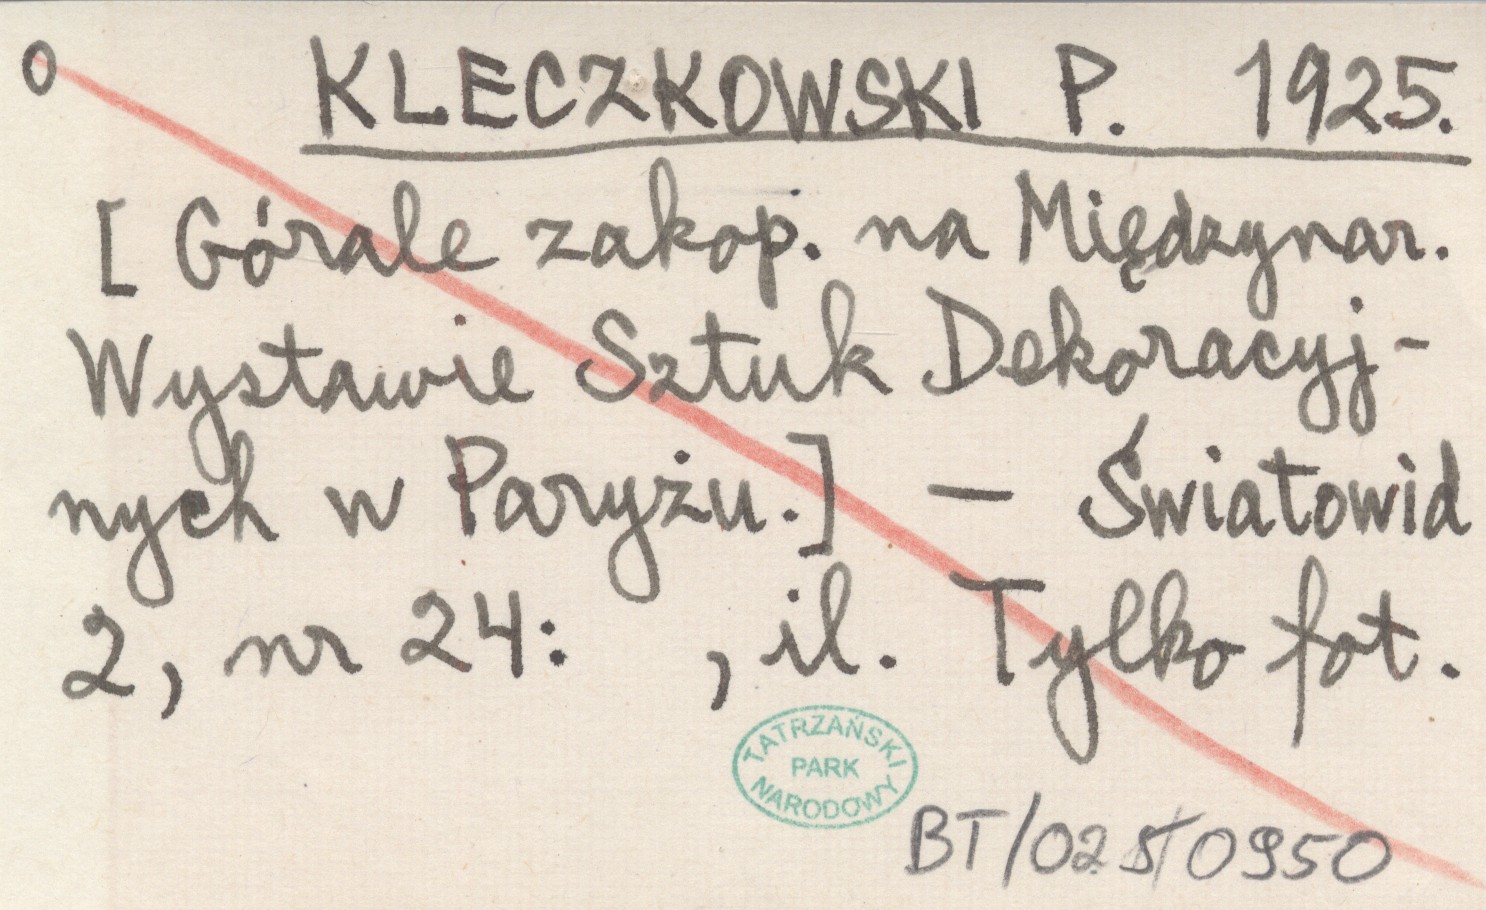 O KLECZKOWSKI P. 1925.
[Górale zakop. na Międzynar.
Wystawie Sztuk Dekoracyj-
nych w Paryżu.] — Światowid
2, nr 24: , il. Tylko fot.
TATRZAŃSKI
PARK
NARODOWY
BT/025/0950